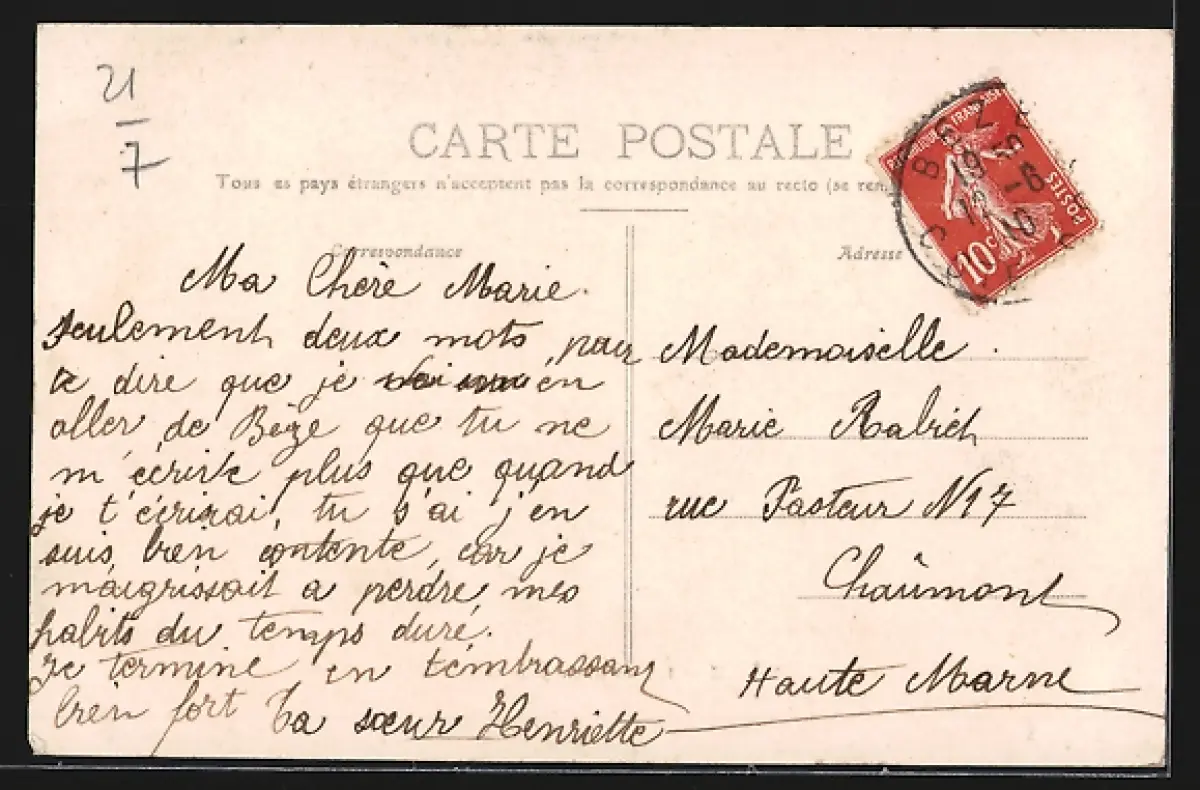 21
7
CARTE POSTALE
Tous es pays étrangers n'acceptent pas la correspondance au recto (se ren
Correspondance
Adresse
RÉPUBLIQUE FRANÇAISE
POSTES
10c
BEZE
19
12 -6
10
Ma Chère Marie.
seulement deux mots, pour
te dire que je en
aller de Bèze que tu ne
m'écriste plus que quand
je t'écrirai, tu s'ai j'en
suis bien contente, car je
maigrissait a perdre mes
habits du temps duré.
Je termine en t'embrassant
bien fort Ta sœur Henriette
Mademoiselle.
Marie
rue Pasteur N17
Chaûmont
Haute Marne